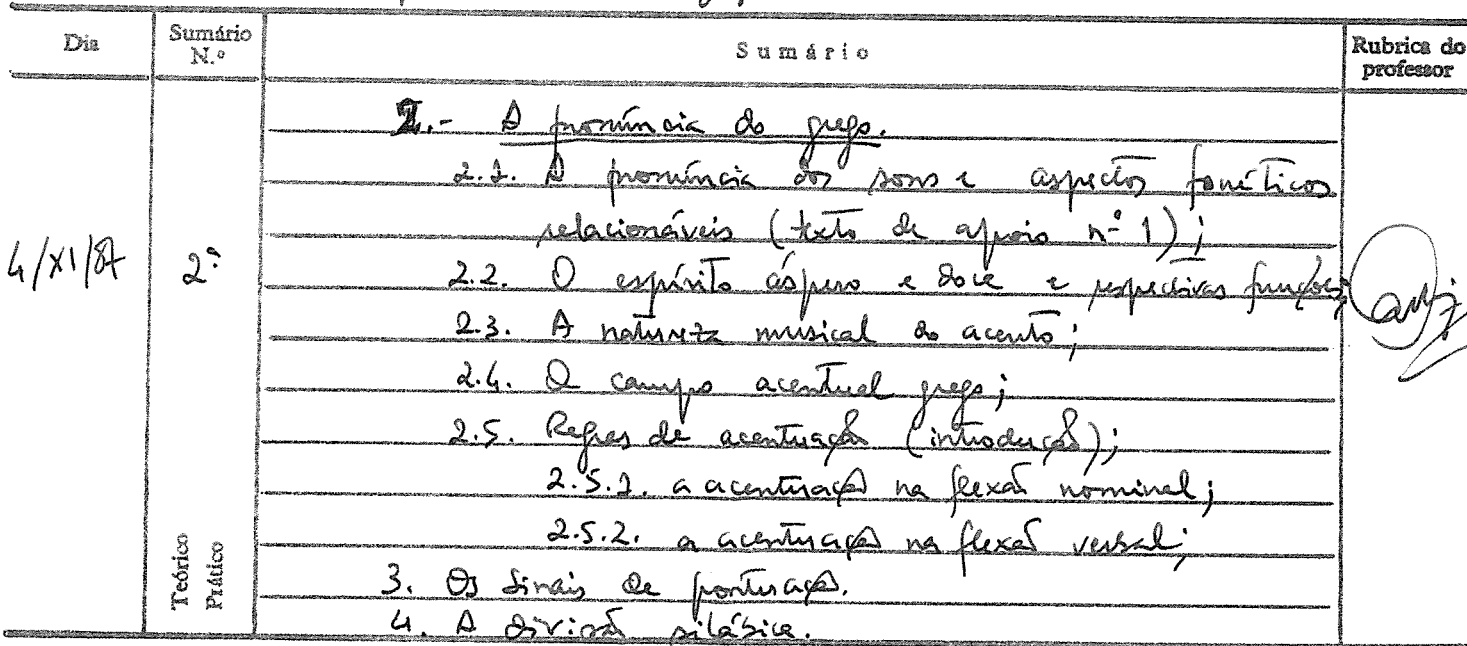 Dia
Sumário N.º
Sumário
Rubrica do professor
4/XI/87
2º
2.- A pronúncia do grego.
2.1. A pronúncia dos sons e aspectos fonéticos
relacionáveis (texto de apoio nº 1);
2.2. O espírito áspero e doce e respectivas funções;
2.3. A natureza musical do acento;
2.4. O campo acentual grego;
2.5. Regras de acentuação (introdução);
2.5.1. a acentuação na flexão nominal;
2.5.2. a acentuação na flexão verbal;
3. Os sinais de pontuação.
4. A divisão silábica.
Teórico
Prático